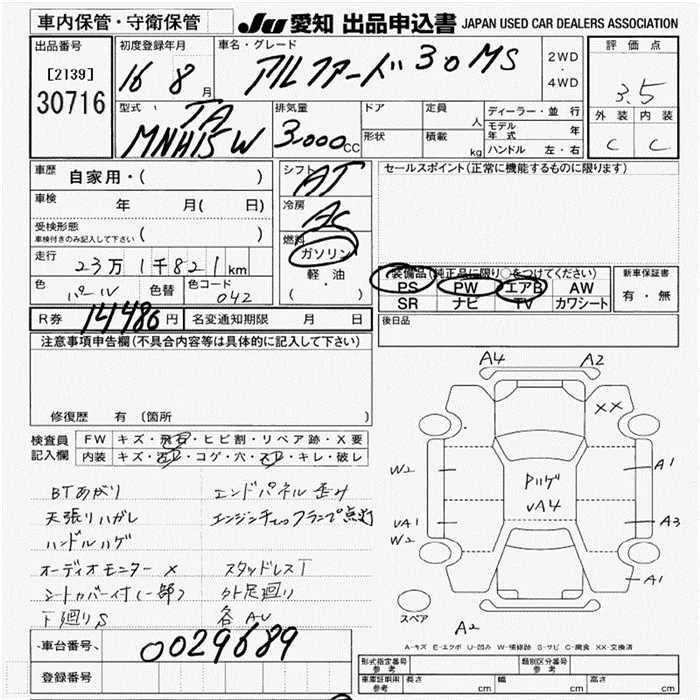 車内保管・守衛保管
JU 愛知 出品申込書 JAPAN USED CAR DEALERS ASSOCIATION
出品番号
[2139]
30716
初度登録年月
16 8月
車名・グレード
アルファード 30 MS
2WD
・
4WD
評価点
3.5
外装 内装
C C
型式
TA
MNH15W
排気量
3,000cc
ドア
形状
定員 人
積載 kg
ディーラー・並行
モデル年式 年
ハンドル 左・右
車歴 自家用・( )
車検 年 月( 日)
受検形態
車検付きのみ記入して下さい ( )
走行 23万1千821km
色 パール 色替 色コード 042
シフト AT
冷房 AC
燃料
ガソリン
軽・油
( )
セールスポイント(正常に機能するものに限ります)
装備品(純正品に限り○をつけてください)
PS PW エアB AW
SR ナビ TV カワシート
新車保証書
有・無
R券 14480円 名変通知期限 月 日
後日品
注意事項申告欄(不具合内容等は具体的に記入して下さい)
修復歴 有(箇所 )
検査員記入欄
FW キズ・飛石・ヒビ割・リペア跡・X要
内装 キズ・汚レ・コゲ・穴・スレ・キレ・破レ
BTあがり エンドパネル歪み
天張りハガレ エンジンチェックランプ点灯
ハンドルハゲ
オーディオモニター× スタッドレス
シートカバー付(一部) 外足廻り
下廻りS 各AU
A4 A2
XX
W2 A1
ハゲ
UA4
UA1 A3
W2
A1
スペア
A2
A-キズ E-エクボ U-凹み W-補修跡 S-サビ C-腐食 XX-交換済
車台番号 0029689
登録番号
型式指定番号 参考
類別区分番号 参考
車庫証明用 参考 長さ cm 幅 cm 高さ cm